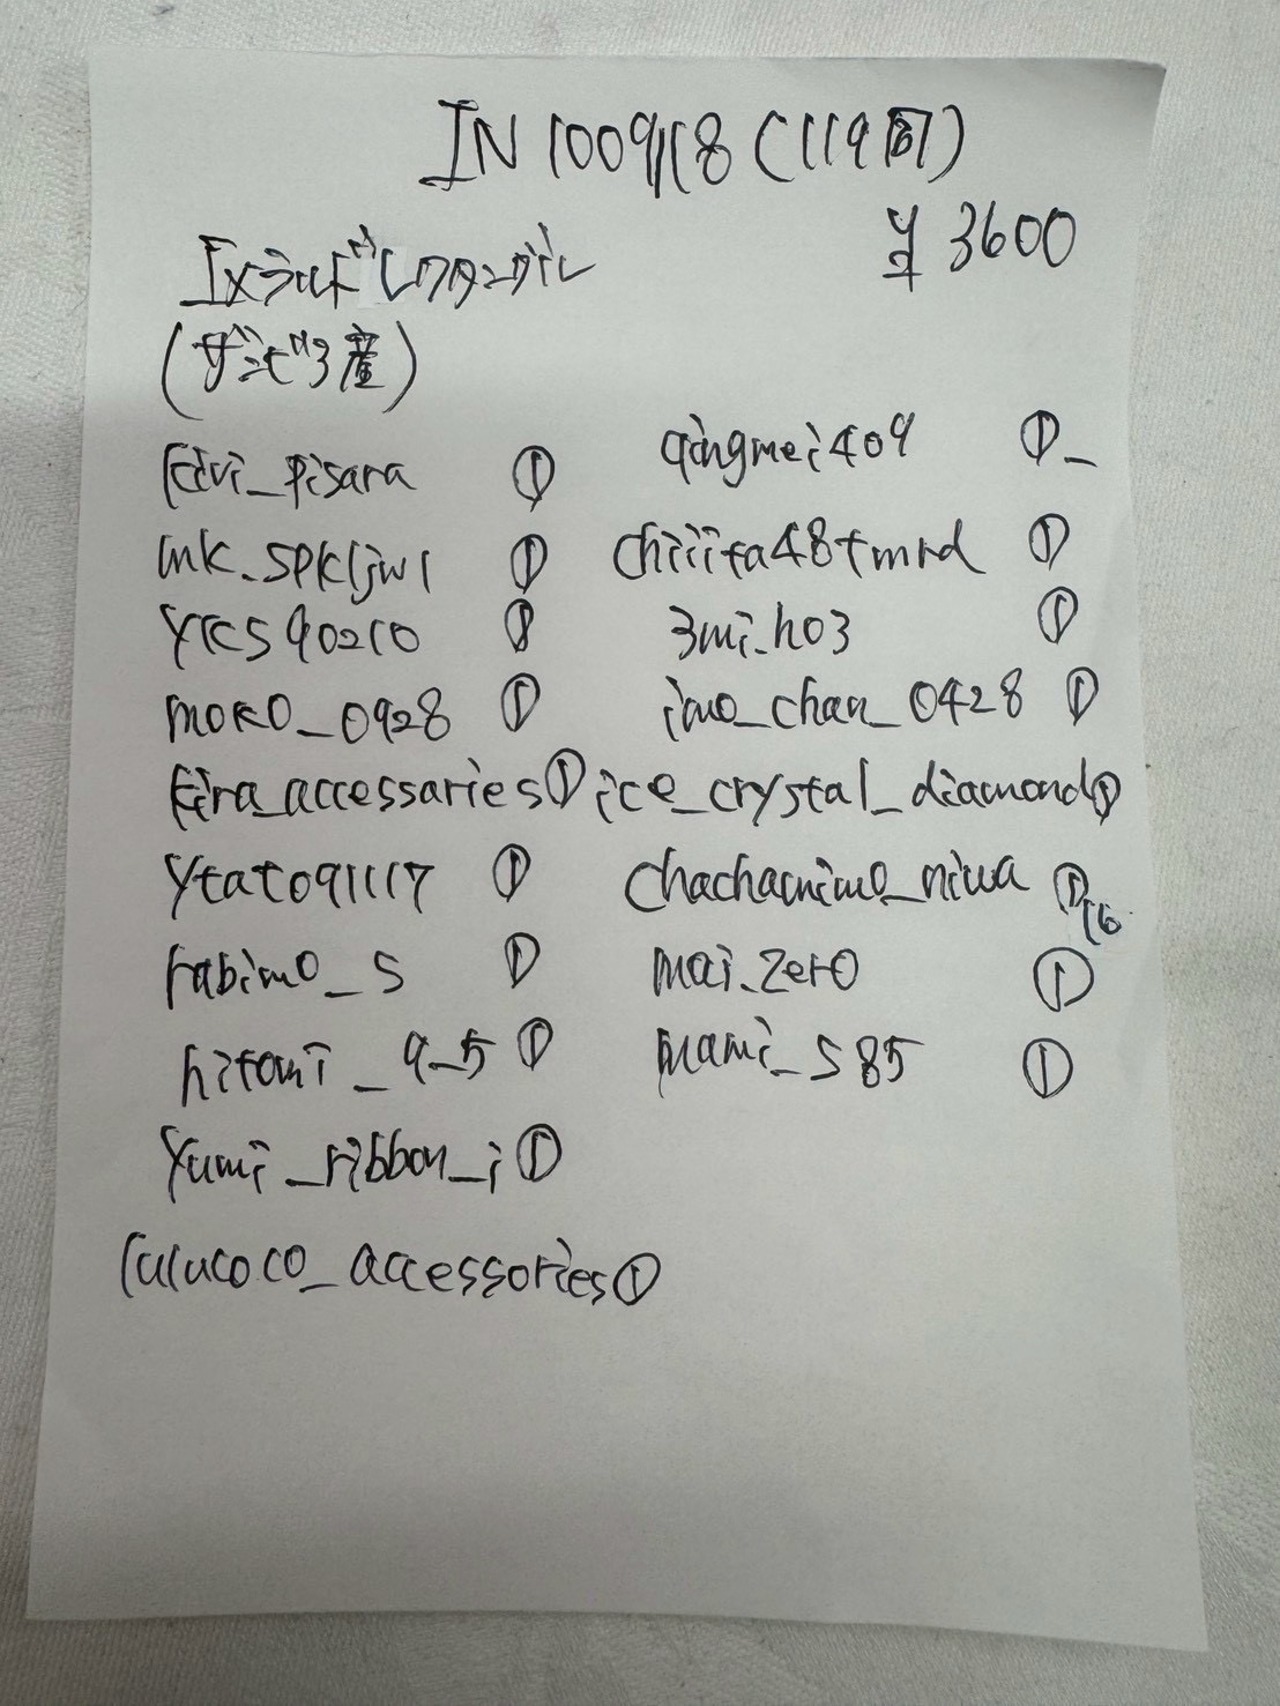 IN 1009118 (119個)
¥ 3600
エメラルドレクタングル
(ザンビア産)
kivi_pisara ①
mk_spkljwl ①
yks90210 ①
moko_0928 ①
kira_accessaries ①
ytato091117 ①
rabimo_s ①
hitomi_9_5 ①
yumi_ribbon_i ①
lulucoco_accessories ①
qingmei409 ①_
chiiita48tmrd ①
3mi_h03 ①
imo_chan_0428 ①
ice_crystal_diamond ①
chachamimo_niwa ① 16
mai_zero ①
mami_s85 ①